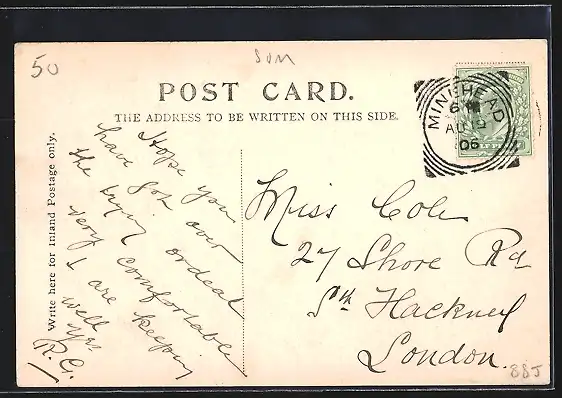 50
SOM
POST CARD.
THE ADDRESS TO BE WRITTEN ON THIS SIDE.
Write here for Inland Postage only.
Hope you
have got over
the trying ordeal
very comfortable
& are keeping
well
yrs
R. G.
MINEHEAD
AU 19
06
Miss Cole
27 Shore Rd
Sth Hackney
London.
885